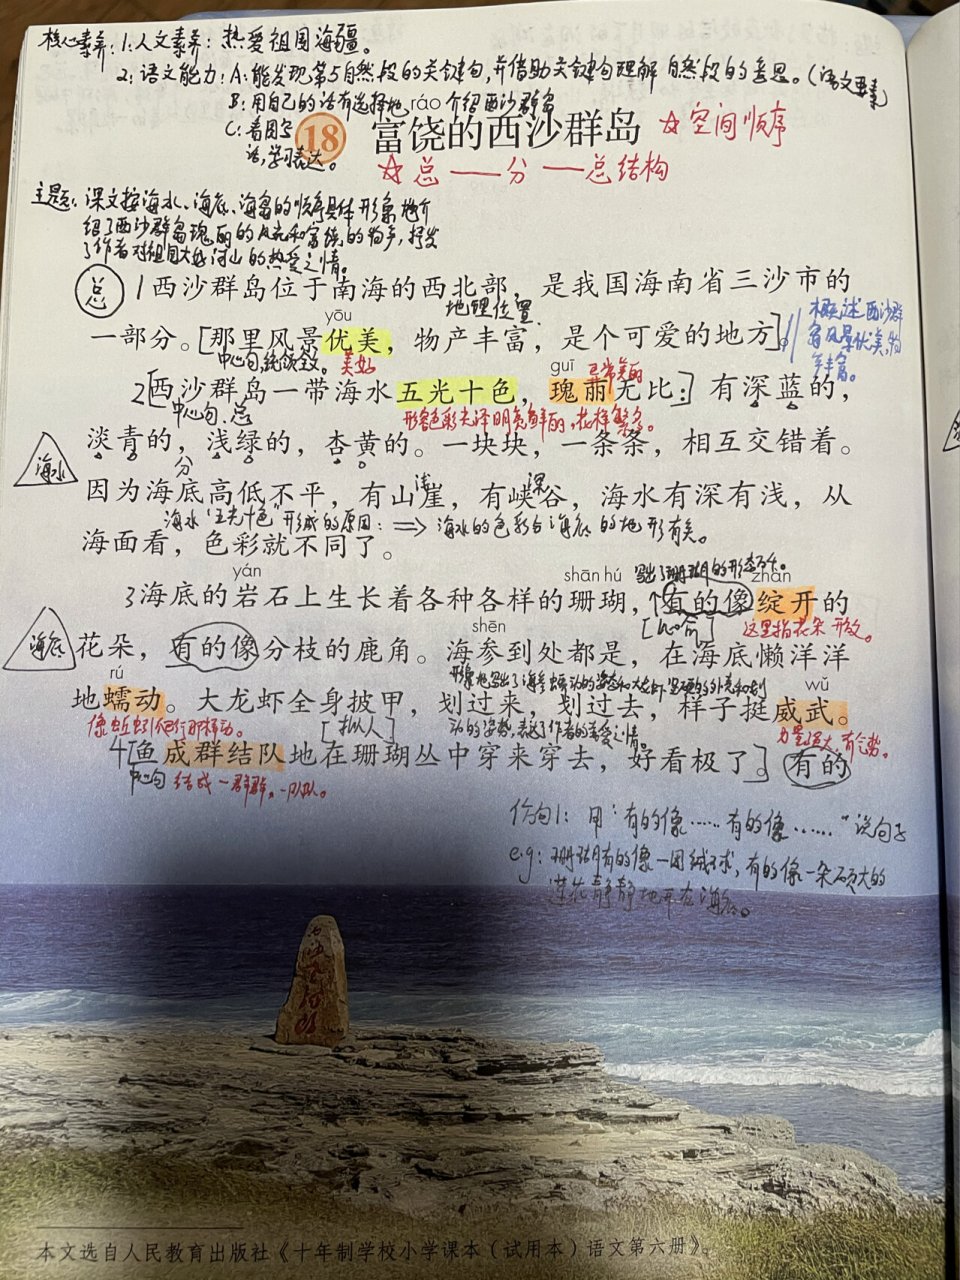 核心素养:1:人文素养:热爱祖国海疆。
2:语文能力:A:能发现第5自然段的关键句,并借助关键句理解自然段的意思。(语文要素)
B:用自己的话有选择地介绍西沙群岛
C:看图写
话,学习表达。
ráo
18 富饶的西沙群岛
☆空间顺序
☆总——分——总结构
主题:课文按海水、海底、海岛的顺序具体形象地介
绍了西沙群岛瑰丽的风光和富饶的物产,抒发
了作者对祖国大好河山的热爱之情。
总
1西沙群岛位于南海的西北部,是我国海南省三沙市的
地理位置
yōu
一部分。[那里风景优美,物产丰富,是个可爱的地方]。
概述西沙群
岛风景优美,物
产丰富。
中心句,统领全文。
美好
guī
异常美丽
2[西沙群岛一带海水五光十色,瑰丽无比:]有深蓝的,
中心句、总
形容色彩光泽明亮鲜丽,花样繁多。
淡青的,浅绿的,杏黄的。一块块,一条条,相互交错着。
海水
分
浅
深
因为海底高低不平,有山崖,有峡谷,海水有深有浅,从
海水“五光十色”形成的原因:⇒海水的色彩与海底的地形有关。
海面看,色彩就不同了。
写出了珊瑚的形态不一。
yán shān hú zhàn
3海底的岩石上生长着各种各样的珊瑚,有的像绽开的
[比喻]
这里指花朵开放。
海底
shēn
花朵,有的像分枝的鹿角。海参到处都是,在海底懒洋洋
rú wǔ
地蠕动。大龙虾全身披甲,划过来,划过去,样子挺威武。
像蚯蚓爬行那样动。
[拟人]
力量强大,有气势。
4[鱼成群结队地在珊瑚丛中穿来穿去,好看极了]。有的
中心句
结成一群群,一队队。
仿句1:用“有的像……有的像……”说句子
e.g:珊瑚有的像一团绒球,有的像一朵硕大的
莲花静静地开在海底。
本文选自人民教育出版社《十年制学校小学课本(试用本)语文第六册》。